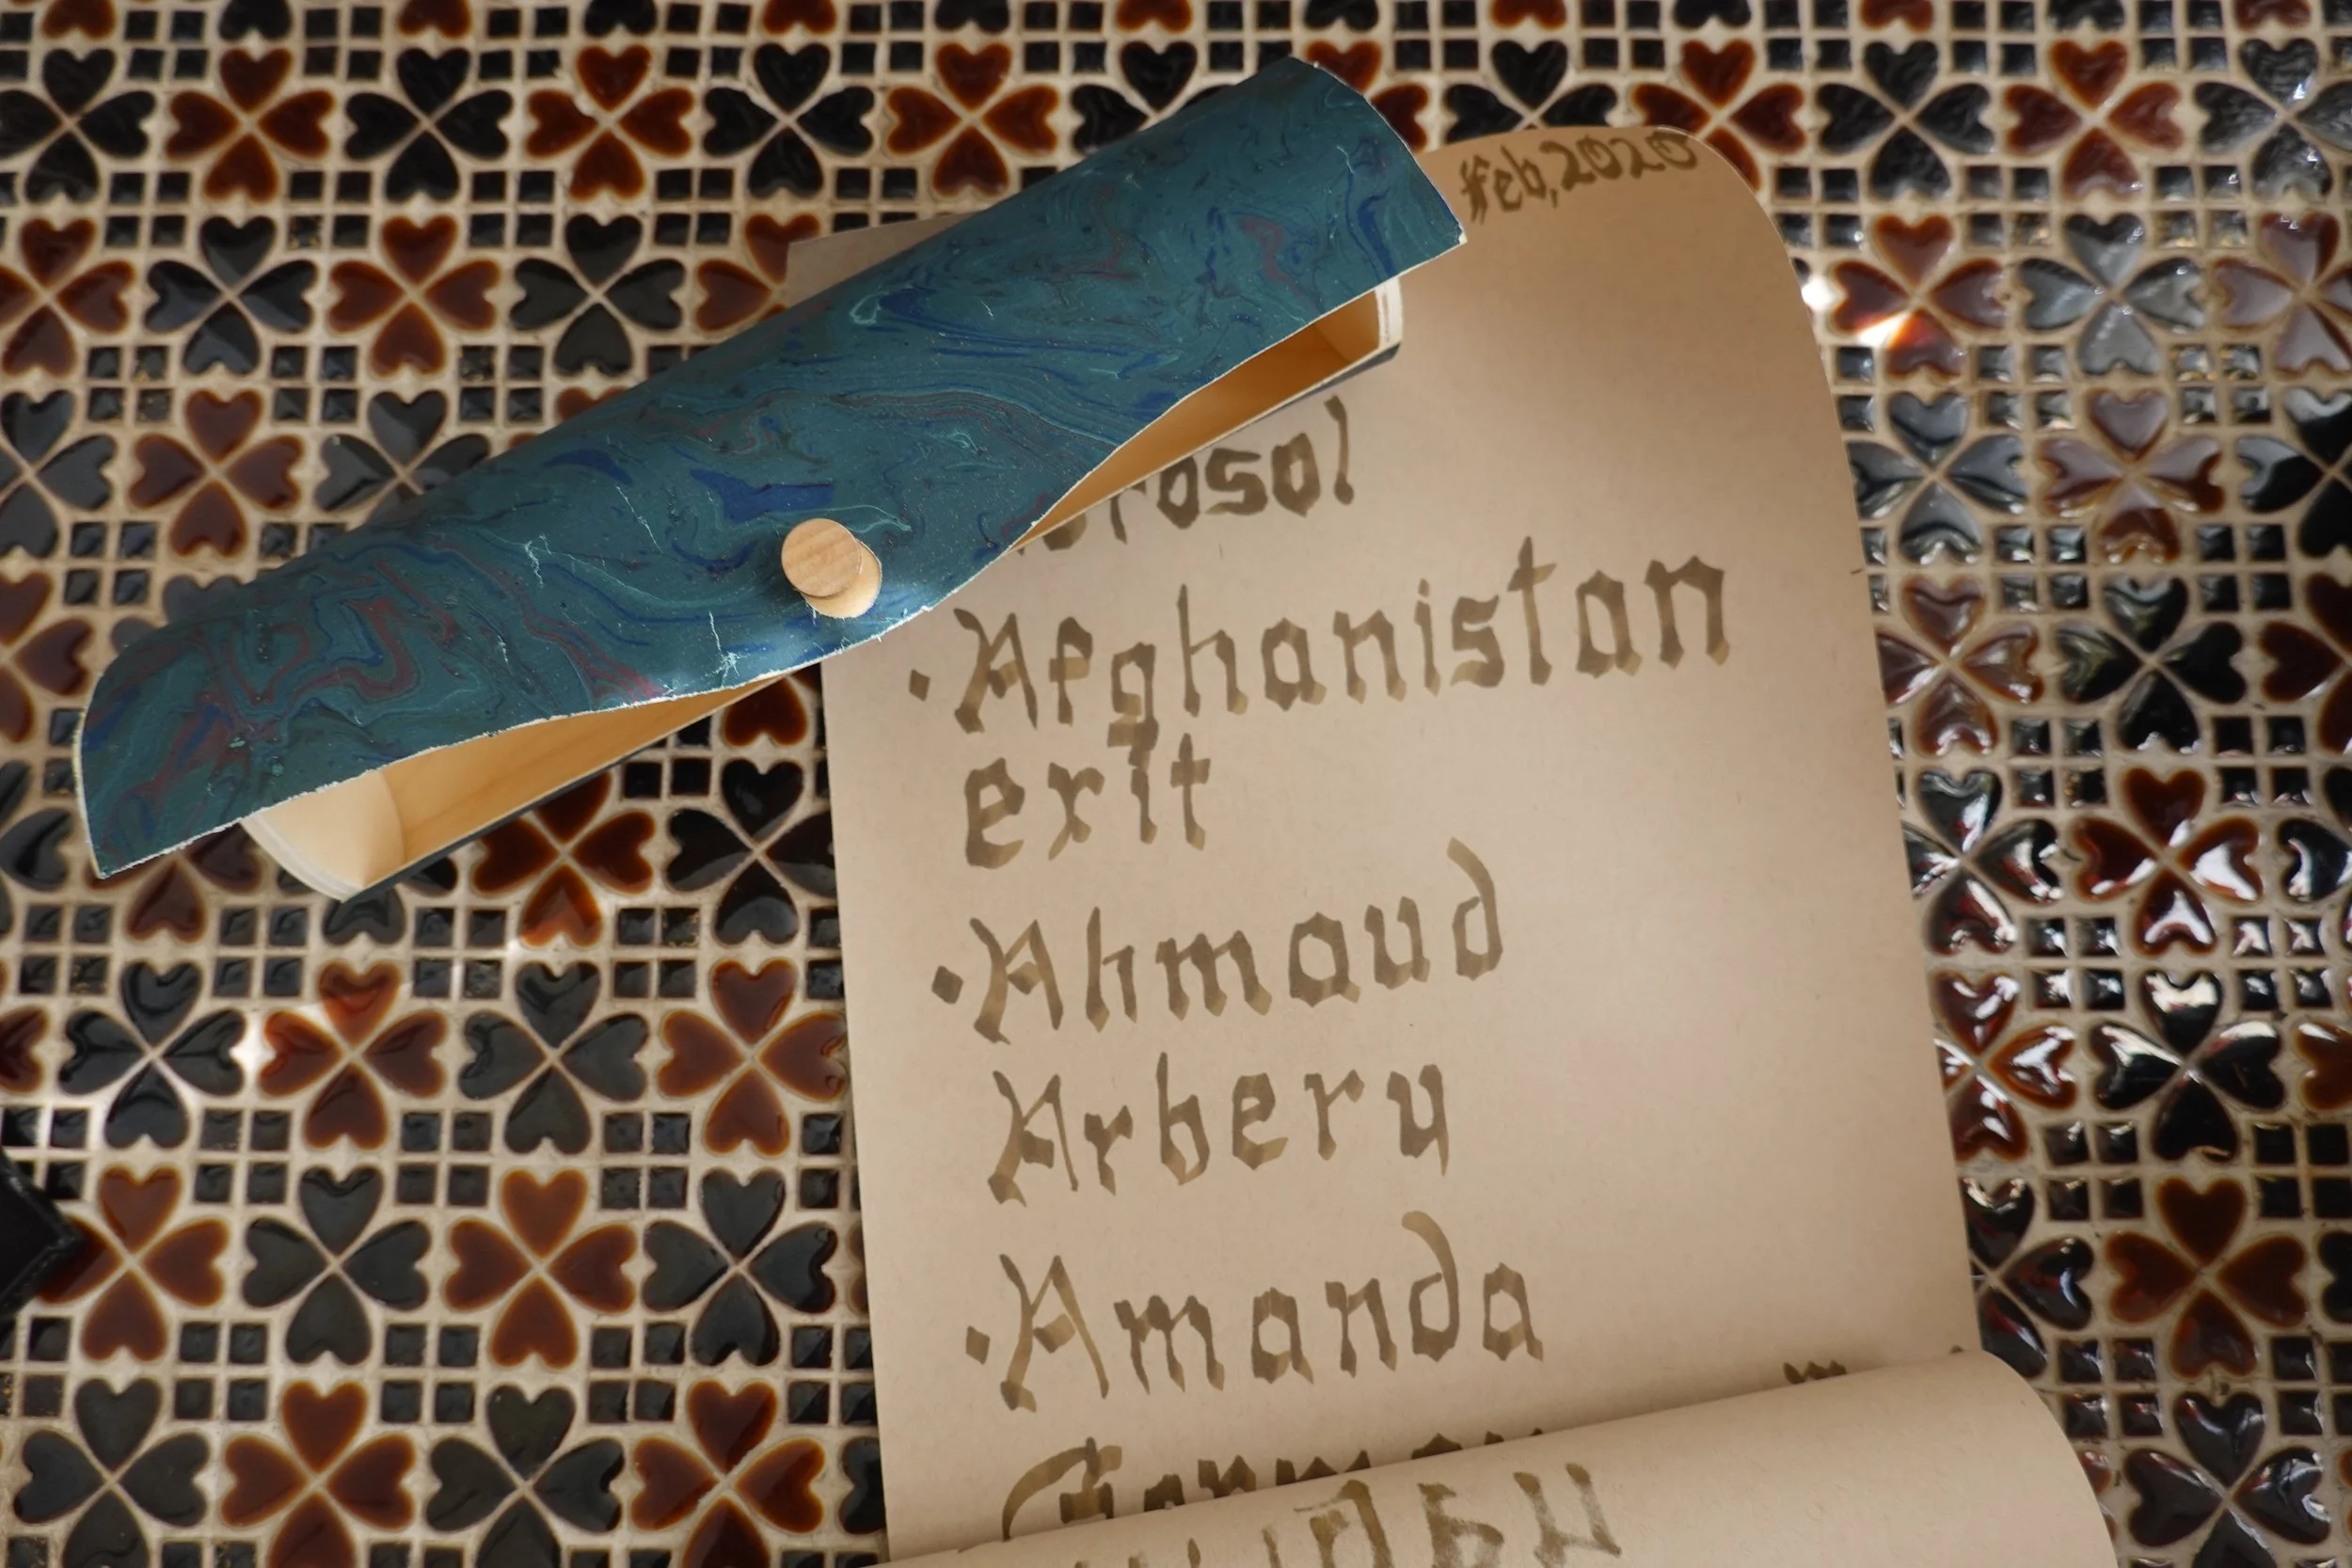 Feb, 2020
· Afghanistan
exit
· Ahmaud
Arbery
· Amanda